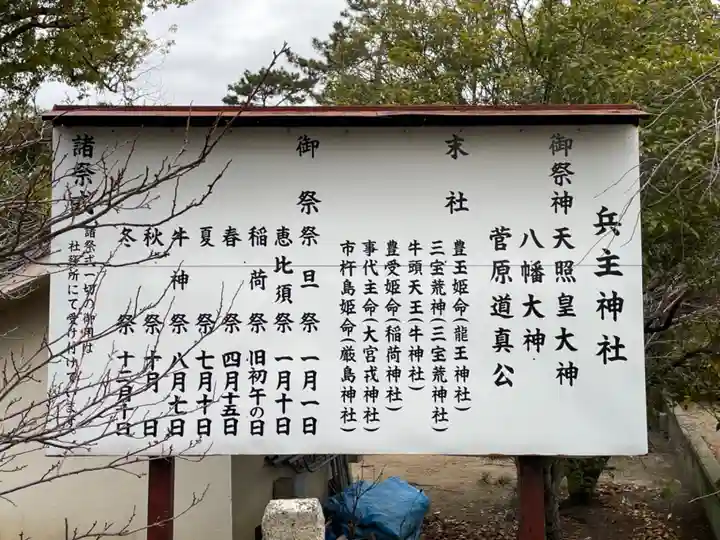 兵主神社
御祭神 天照皇大神
八幡大神
菅原道真公
末社
豊玉姫命(龍王神社)
三宝荒神(三宝荒神社)
牛頭天王(牛神社)
豊受姫命(稲荷神社)
事代主命(大宮戎神社)
市杵島姫命(厳島神社)
御祭祭
旦祭 一月一日
恵比須祭 一月十日
稲荷祭 旧初午の日
春祭 四月十五日
夏祭 七月十日
牛神祭 八月七日
秋祭 十月 日
冬祭 十二月十日
諸祭式
諸祭式一切の御用は
社務所にて受け付けて